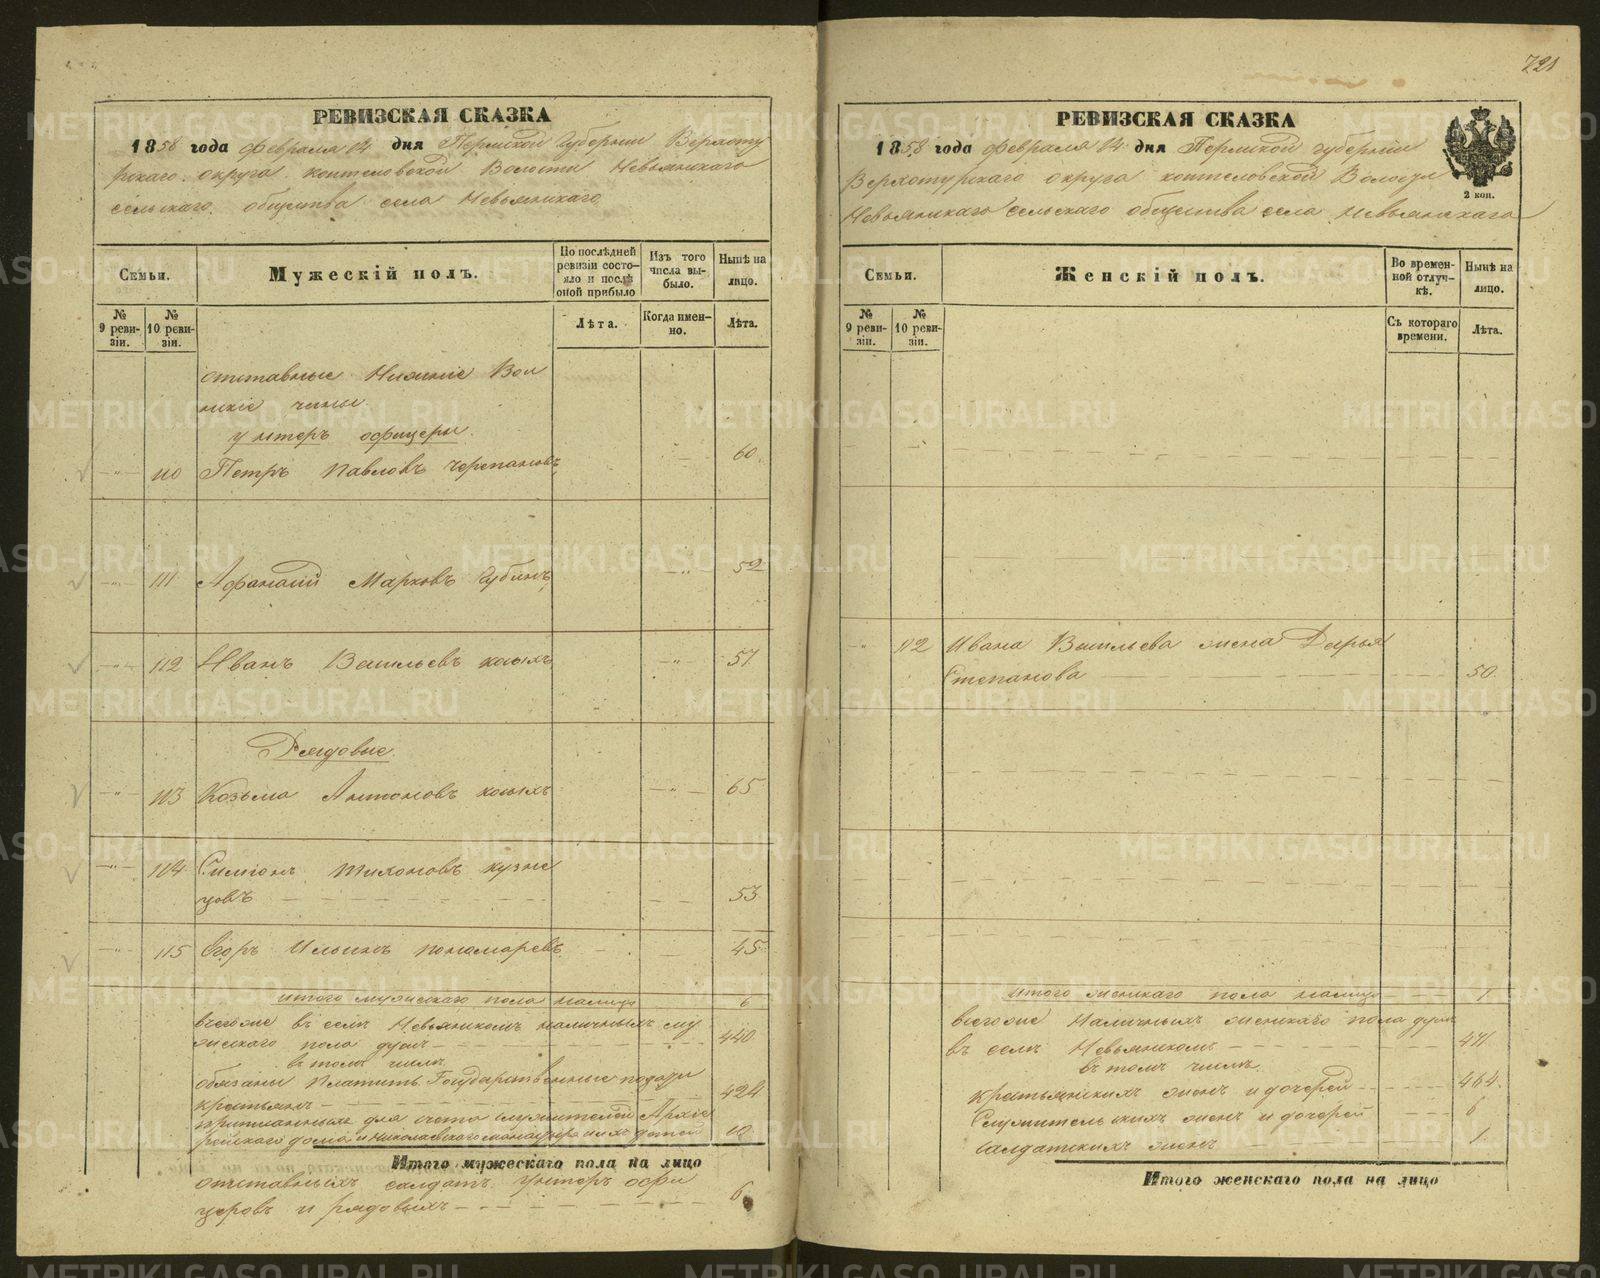 РЕВИЗСКАЯ СКАЗКА
1858 года февраля 14 дня Пермской губернии Верхоту
рскаго округа коптеловской Волости Невьянскаго
сельскаго общества села Невьянскаго
Семьи.
Мужескій полъ.
По послѣдней ревизіи состо-яло и послѣ оной прибыло
Изъ того числа вы-было.
Нынѣ на лицо.
№ 9 реви-зіи.
№ 10 реви-зіи.
Лѣта.
Когда имен-но.
Лѣта.
отставные Нижніе Вои
нскіе чины
унтеръ офицеры.
110 Петръ Павловъ Черепановъ 60
111 Афанасій Марковъ Губинъ 52
112 Иванъ Васильевъ косыхъ 57
Рядовые.
113 Козьма Антоновъ косыхъ 65
114 Симіонъ Тихоновъ кузне
цовъ 53
115 Егоръ Ильинъ пономаревъ 45
итого мужескаго пола налицо 6
всегоже въ селѣ Невьянскомъ наличныхъ му
жескаго пола душъ 440
въ томъ числѣ
обязаны платить Государственные подати
крестьянъ 424
приписанные для счета служителей Архіе
рейскаго дома и Николаевскаго монастыря и ихъ детей 10
Итого мужескаго пола на лицо
отставныхъ салдатъ унтеръ офи
церовъ и рядовыхъ 6
721
РЕВИЗСКАЯ СКАЗКА
1858 года февраля 14 дня Пермской губерніи
Верхотурскаго округа коптеловской Волости
Невьянскаго сельскаго общества села Невьянскаго
2 коп.
Семьи.
Женскій полъ.
Во времен-ной отлуч-кѣ.
Нынѣ на лицо.
№ 9 реви-зіи.
№ 10 реви-зіи.
Съ котораго времени.
Лѣта.
112 Ивана Васильева жена Дарья
Степанова 50
итого женскаго пола налицо 1
всегоже Наличныхъ женскаго пола душъ
въ селѣ Невьянскомъ 471
въ томъ числѣ
крестьянскихъ женъ и дочерей 464
Служительскихъ женъ и дочерей 6
салдатскихъ женъ 1
Итого женскаго пола на лицо
METRIKI.GASO-URAL.RU